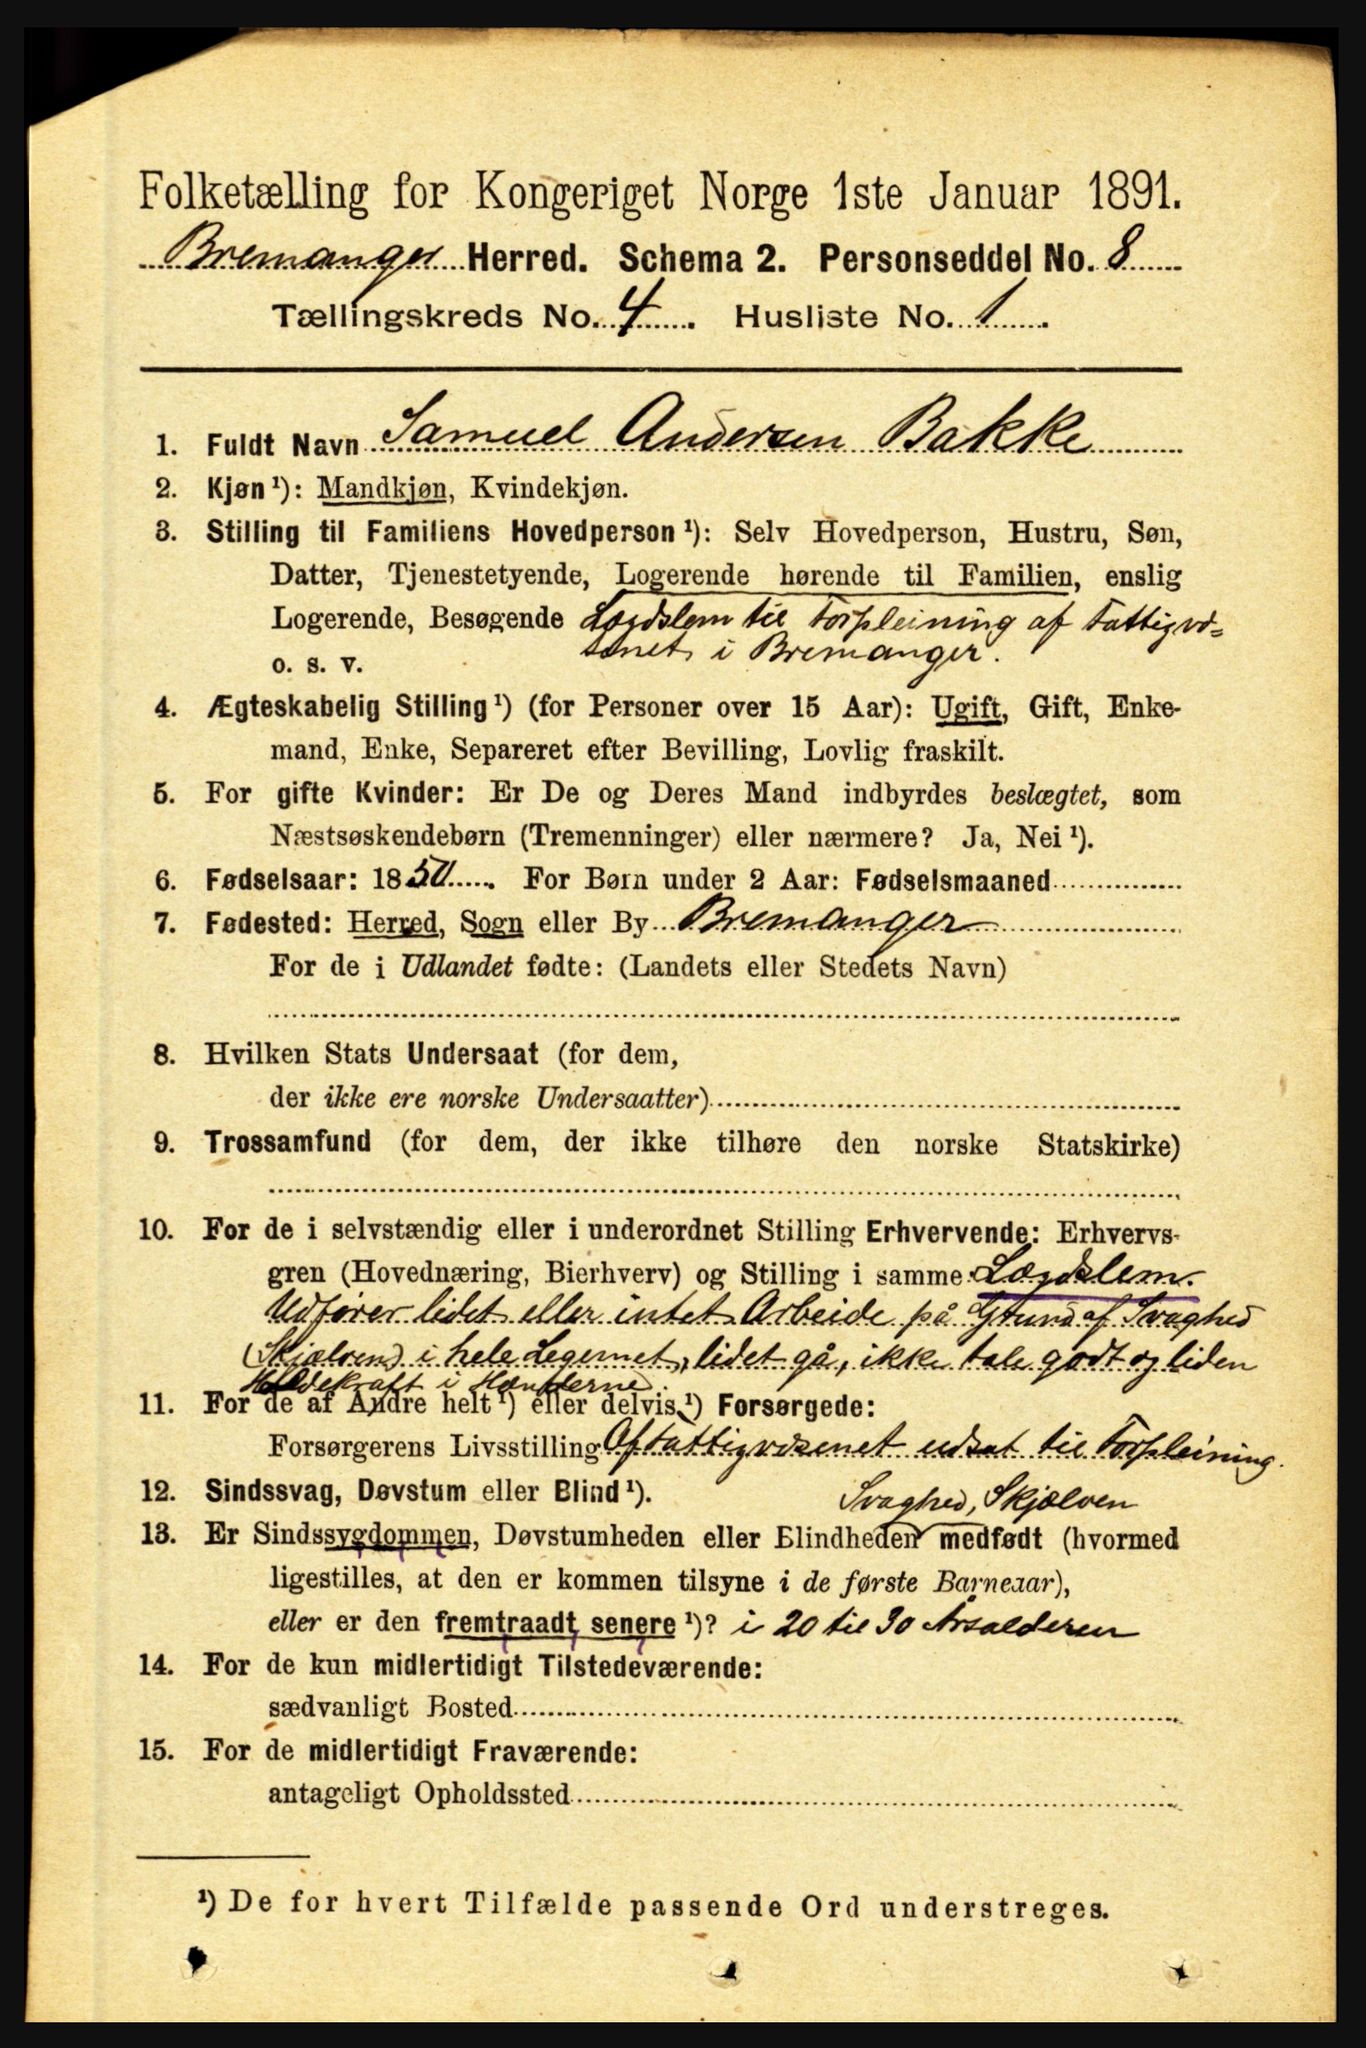 Folketælling for Kongeriget Norge 1ste Januar 1891.
Bremanger Herred. Schema 2. Personseddel No. 8
Tællingskreds No. 4. Husliste No. 1.
1. Fuldt Navn Samuel Andersen Bakke
2. Kjøn ¹): Mandkjøn, Kvindekjøn.
3. Stilling til Familiens Hovedperson ¹): Selv Hovedperson, Hustru, Søn,
Datter, Tjenestetyende, Logerende hørende til Familien, enslig
Logerende, Besøgende Lægdslem til Forpleining af Fattigvæ-
o. s. v. senet i Bremanger.
4. Ægteskabelig Stilling ¹) (for Personer over 15 Aar): Ugift, Gift, Enke-
mand, Enke, Separeret efter Bevilling, Lovlig fraskilt.
5. For gifte Kvinder: Er De og Deres Mand indbyrdes beslægtet, som
Næstsøskendebørn (Tremenninger) eller nærmere? Ja, Nei ¹).
6. Fødselsaar: 1850. For Børn under 2 Aar: Fødselsmaaned
7. Fødested: Herred, Sogn eller By Bremanger
For de i Udlandet fødte: (Landets eller Stedets Navn)
8. Hvilken Stats Undersaat (for dem,
der ikke ere norske Undersaatter)
9. Trossamfund (for dem, der ikke tilhøre den norske Statskirke)
10. For de i selvstændig eller i underordnet Stilling Erhvervende: Erhvervs-
gren (Hovednæring, Bierhverv) og Stilling i samme Lægdslem.
Udfører lidet eller intet Arbeide på Grund af Svaghed
(Skjælven) i hele Legemet, lidet gå, ikke tale godt og liden
Holdekraft i Hænderne.
11. For de af Andre helt ¹) eller delvis ¹) Forsørgede:
Forsørgerens Livsstilling Af Fattigvæsenet udsat til Forpleining.
12. Sindssvag, Døvstum eller Blind ¹). Svaghed, Skjælven
13. Er Sindssygdommen, Døvstumheden eller Blindheden medfødt (hvormed
ligestilles, at den er kommen tilsyne i de første Barneaar),
eller er den fremtraadt senere ¹)? i 20 til 30 Årsalderen
14. For de kun midlertidigt Tilstedeværende:
sædvanligt Bosted
15. For de midlertidigt Fraværende:
antageligt Opholdssted
¹) De for hvert Tilfælde passende Ord understreges.